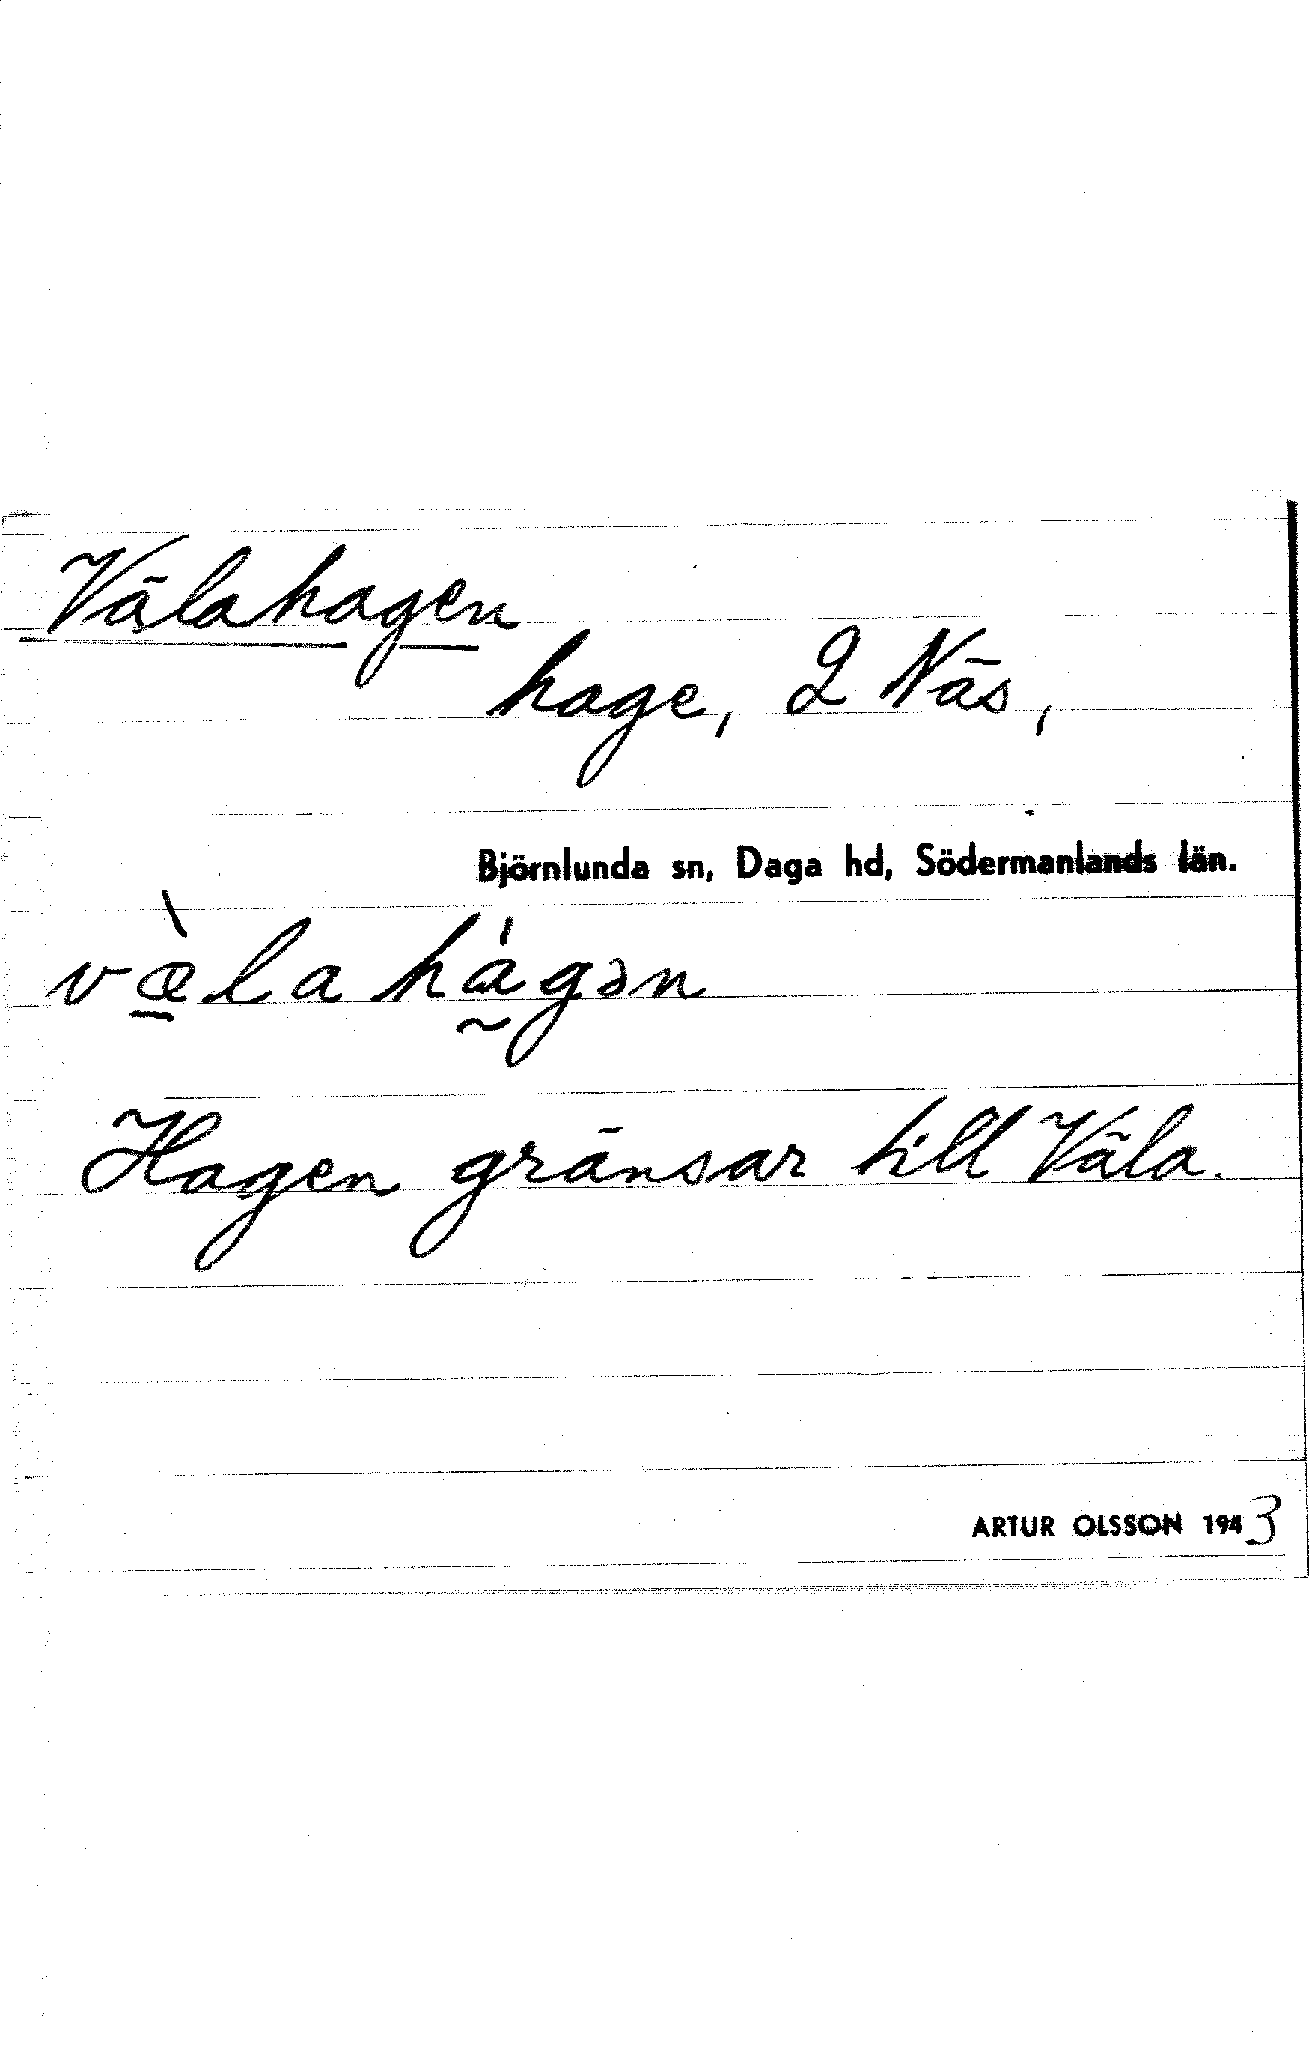 Välahagen
hage, 2 Näs,
Björnlunda sn, Daga hd, Södermanlands län.
væ̠̀la há̰gən
Hagen gränsar till Väla.
ARTUR OLSSON 1943